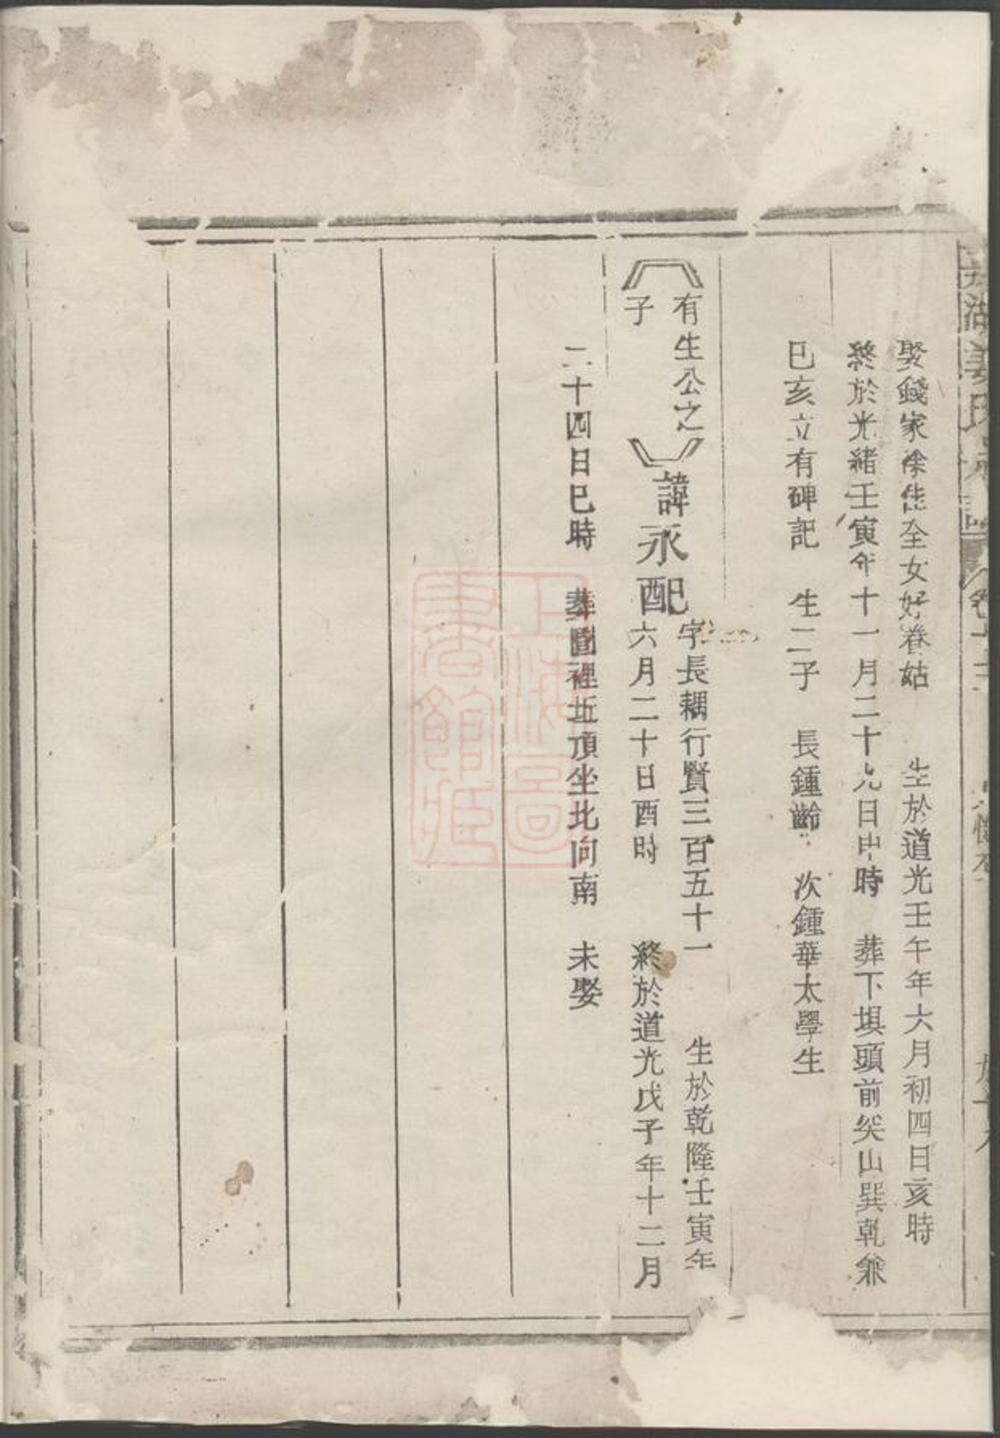 娶錢家徐佳全女好巻姑 生於道光壬午年六月初四日亥時
終於光緒壬寅年十一月二十九日申時 葬下垻頭前癸山巽乾兼
巳亥立有碑記 生二子 長鍾齡 次鍾華太學生
有生公之
子
諱永配
字長耦行賢三百五十一 生於乾隆壬寅年
六月二十日酉時 終於道光戊子年十二月
二十四日巳時 葬園裡坵頂坐北向南 未娶
上海圖
書館藏